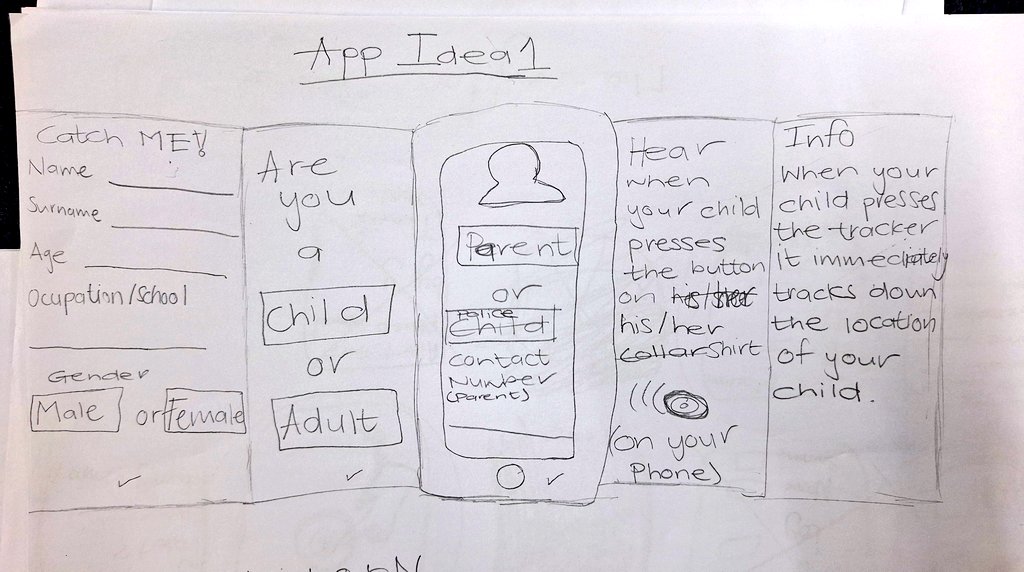 App Idea 1
Catch ME!
Name
Surname
Age
Ocupation/School
Gender
Male or Female
Are
you
a
Child
or
Adult
Parent
or
Police
Child
contact
Number
(parent)
Hear
when
your child
presses
the button
on his/her
his/her
collarshirt
(on your
Phone)
Info
When your
child presses
the tracker
it immediately
tracks down
the location
of your
child.